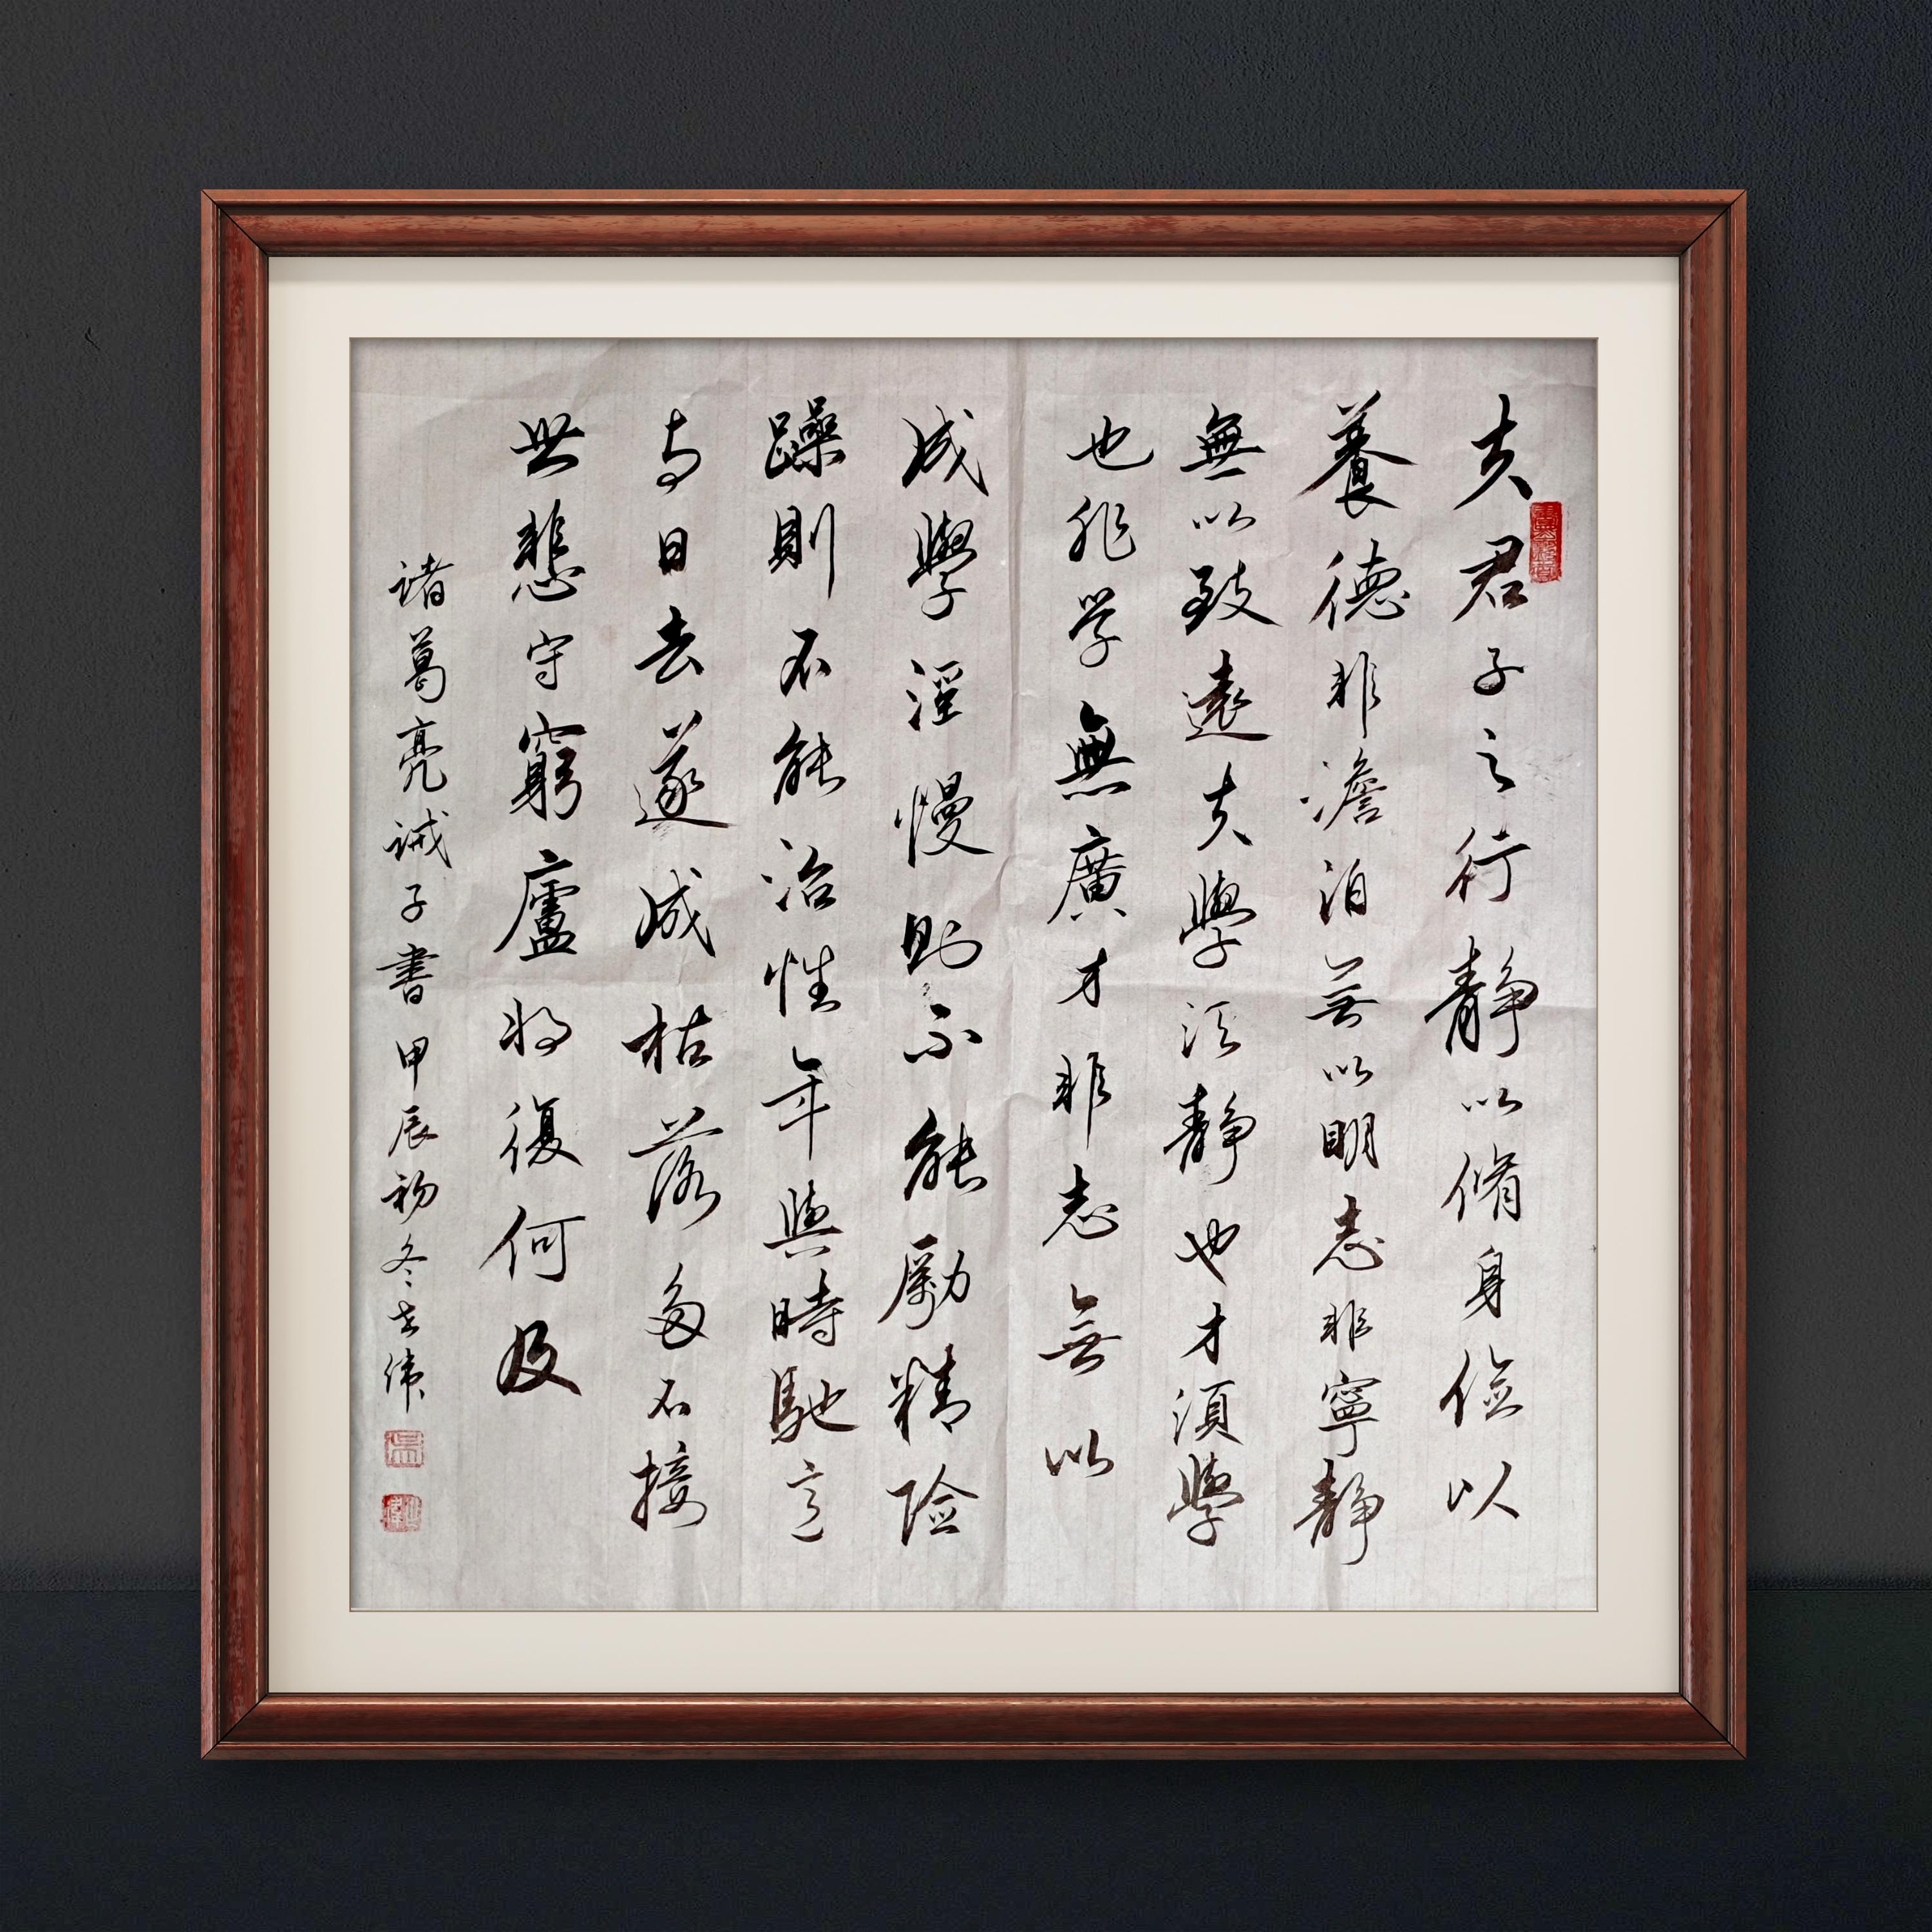 夫君子之行靜以脩身儉以
養德非澹泊无以明志非寧靜
無以致遠夫學須靜也才須學
也非学無廣才非志无以
成學淫慢則不能勵精險
躁則不能冶性年與時馳意
与日去遂成枯落多不接
世悲守窮廬將復何及
诸葛亮诫子書甲辰初冬志伟